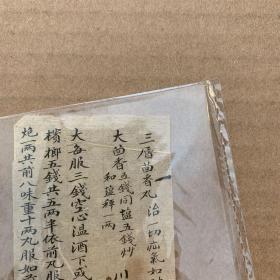 三層茴香丸治一切疝氣如
大茴香五錢同塩五錢炒
和塩拜一兩
川
大每服三錢空心温酒下或
檳榔五錢共五兩半依前丸服
炮一兩共前八味重十两丸服如